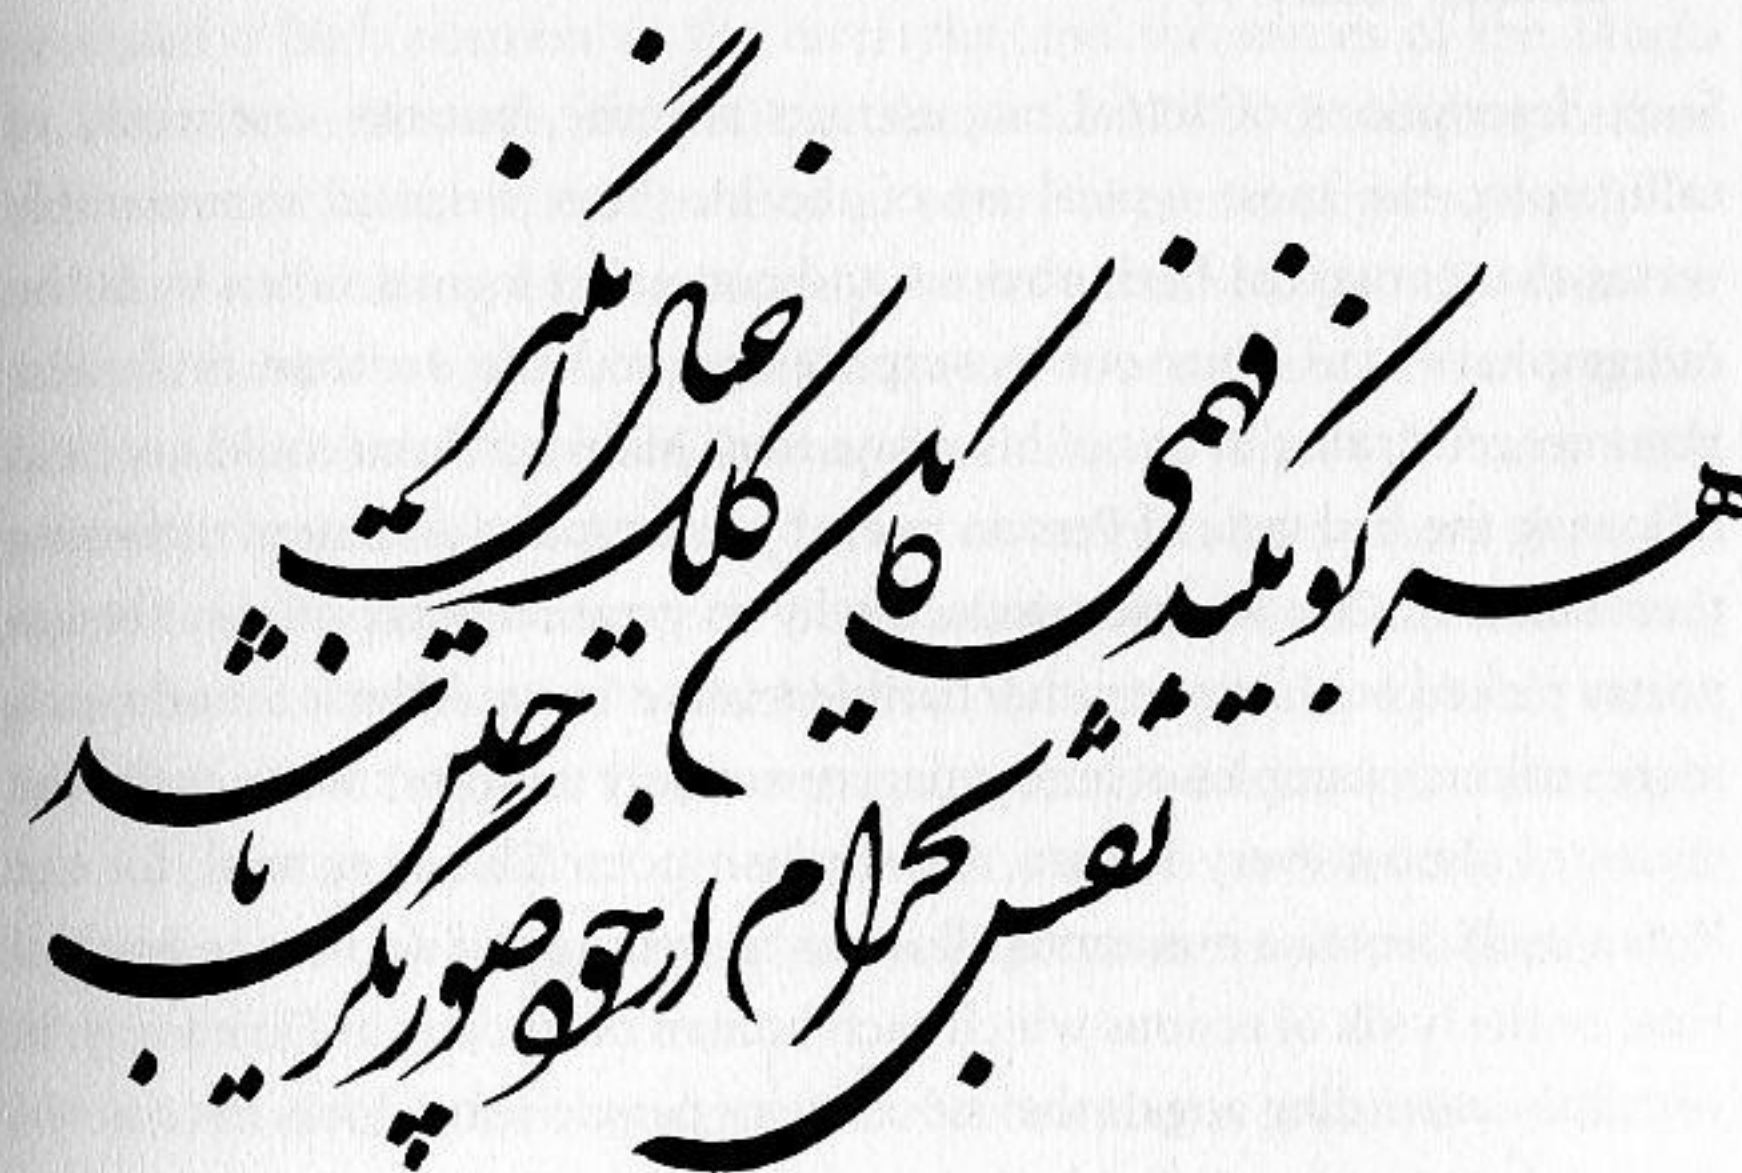 هر کو نکند فهمی کاین کلک خیال انگیز
نقشش بحرام ار خود صورتگر چین باشد